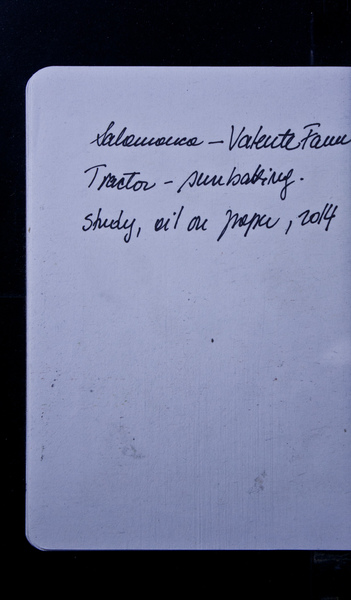 Salamanca – Valente Farm
Tractor – sunbaking.
Study, oil on paper, 2014